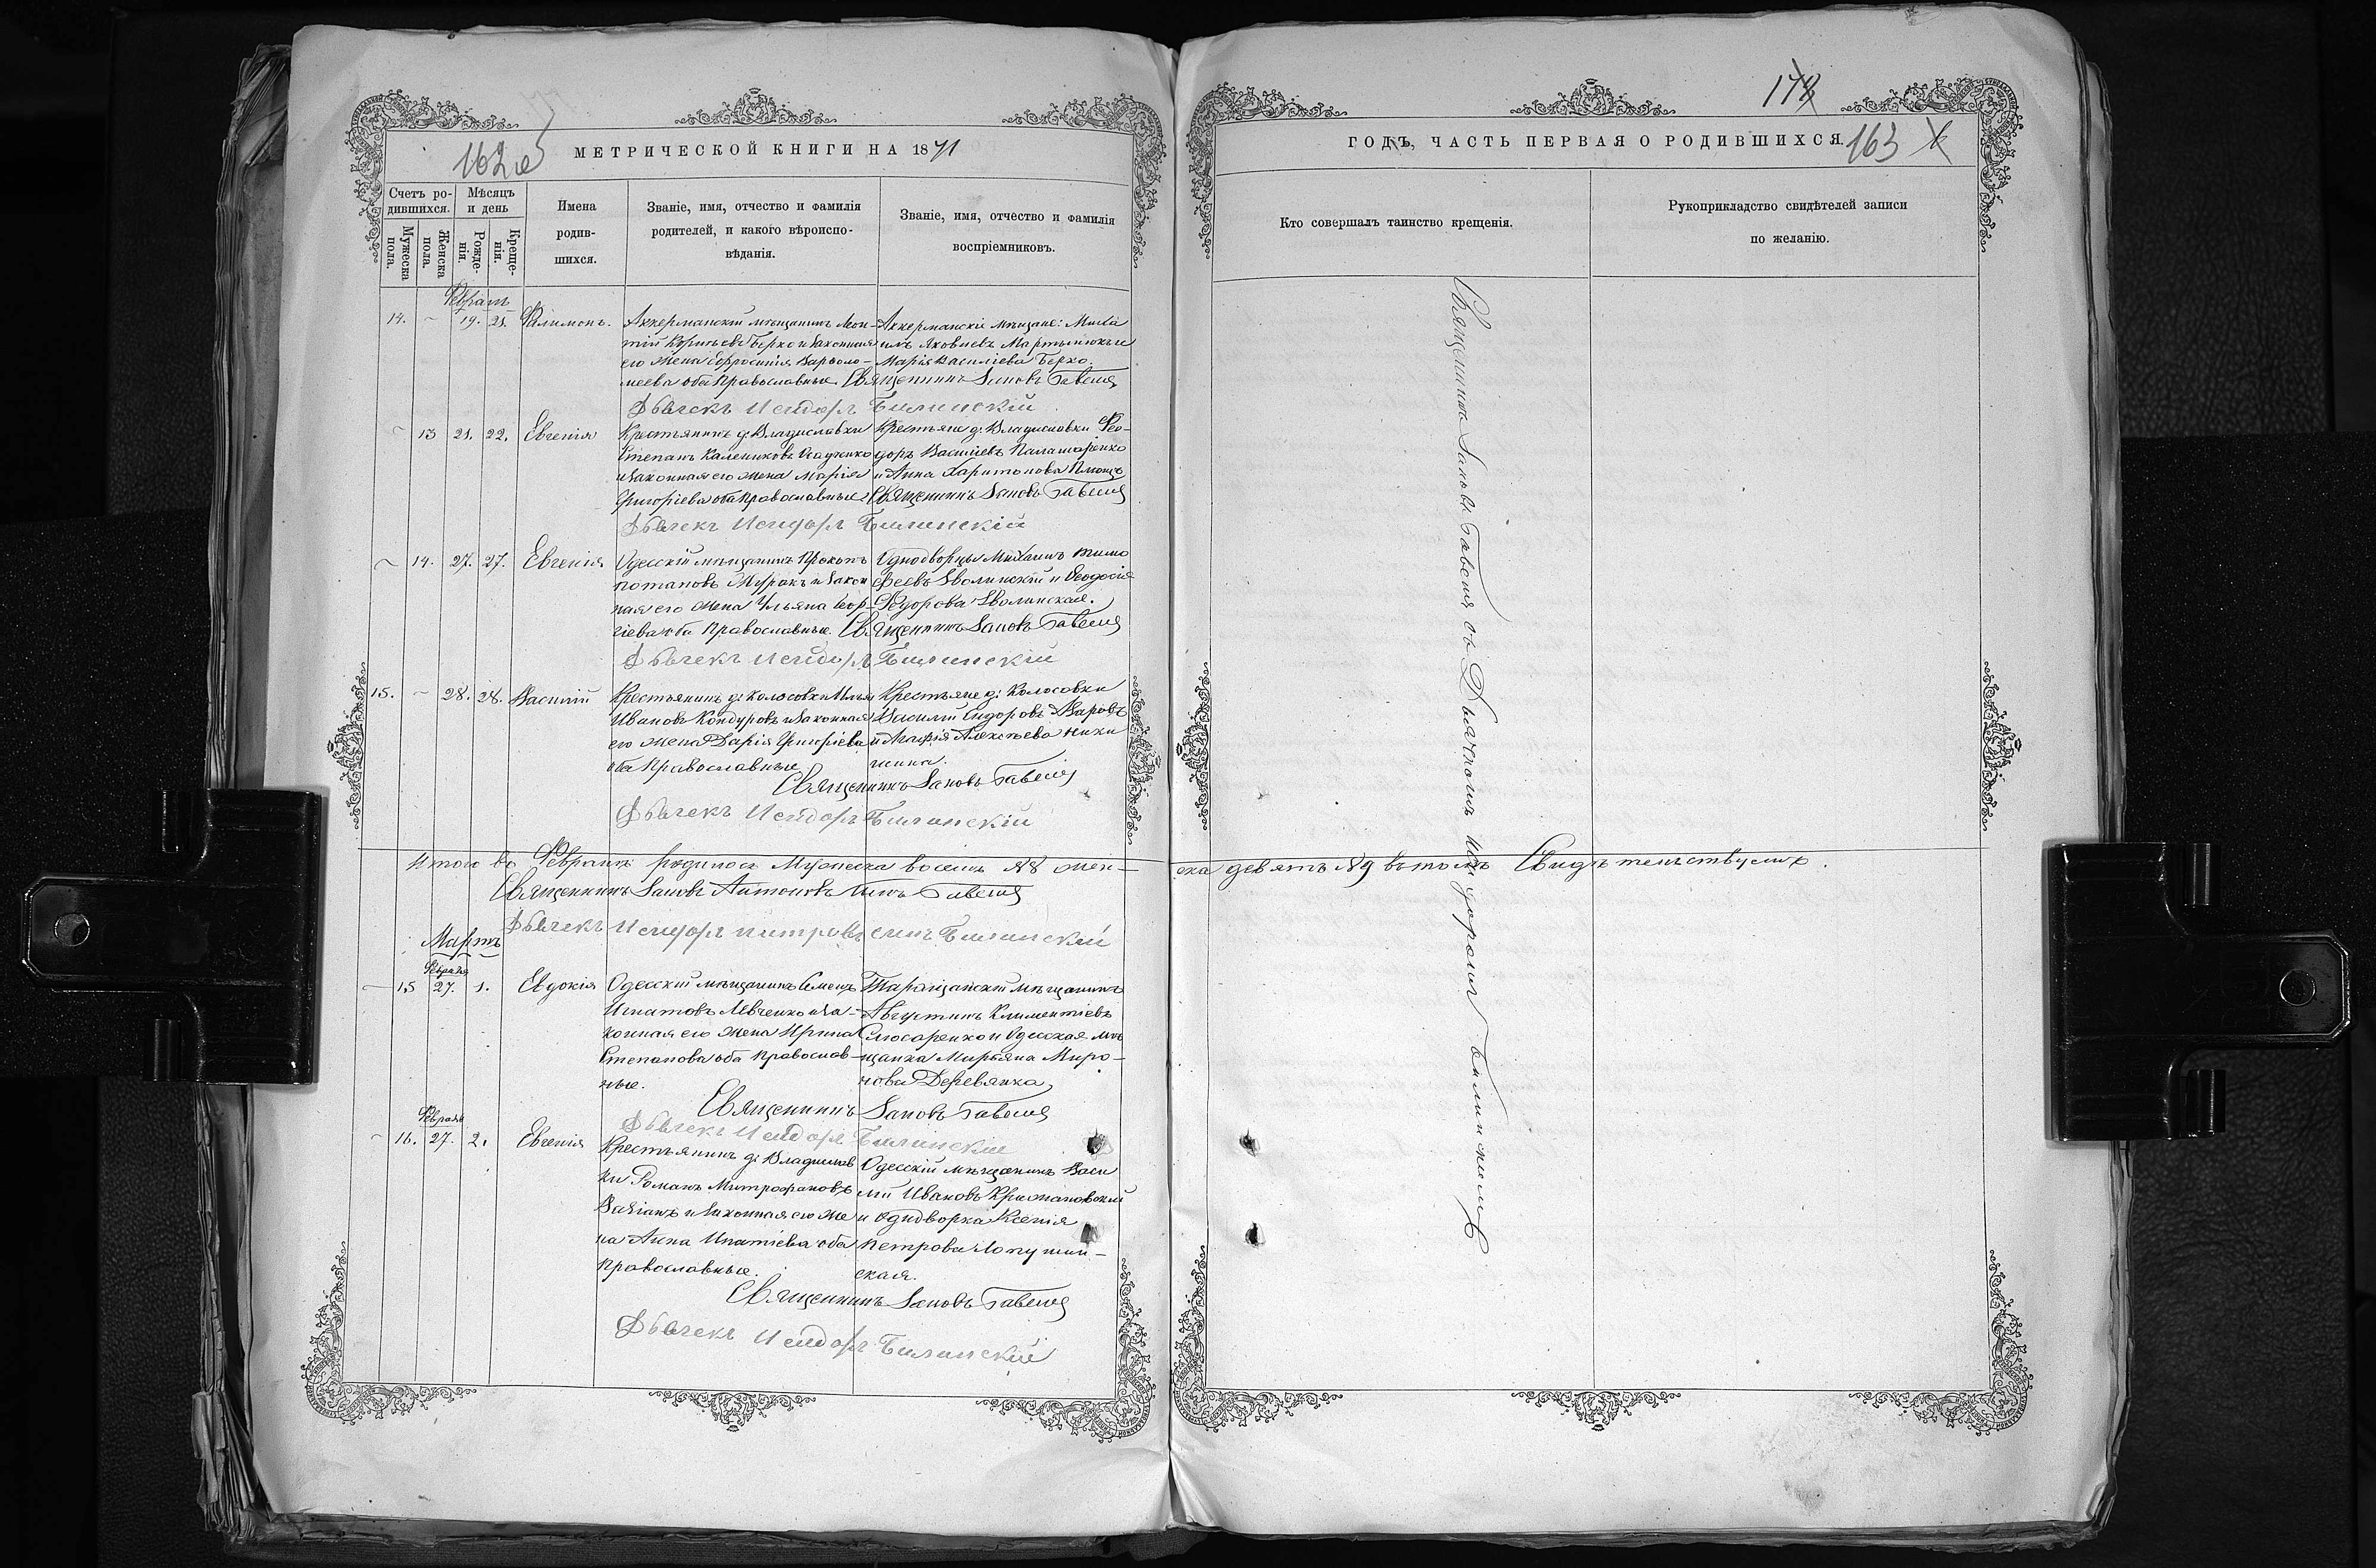 162 об
МЕТРИЧЕСКОЙ КНИГИ НА 1871
Счетъ родившихся.
Мужеска пола.
Женска пола.
Мѣсяцъ и день
Рожденія.
Крещенія.
Имена родившихся.
Званіе, имя, отчество и фамилія родителей, и какого вѣроисповѣданія.
Званіе, имя, отчество и фамилія воспріемниковъ.
Февраль
14. – 19. 21. Филимонъ.
Аккерманскій мѣщанинъ Леон-
тій Берко и законная
его жена Ефросинія Варѳоло-
меева оба Православные.
Аккерманскіе мѣщане: Миха
илъ Яковлевъ Мартынюкъ и
Марія Василіева Берко.
Священникъ Іаковъ Гавеля
Дьячекъ Исидоръ Билинскій
– 13 21. 22. Евгенія
Крестьянинъ д. Владиславки
Степанъ Калениковъ
и законная его жена Марія
Григоріева оба Православные
Крестьяне д. Владиславки Ѳео-
доръ Василіевъ Паламаренко
и Анна Харитонова
Священникъ Іаковъ Гавеля
Дьячекъ Исидоръ Билинскій
– 14. 27. 27. Евгенія
Одесскій мѣщанинъ Прокопъ
Потаповъ и закон
ная его жена Ульяна Геор-
гіева оба Православные.
Однодворцы Михаилъ Тимо
феевъ Зволинскій и Ѳеодосія
Ѳедорова Зволинская.
Священникъ Іаковъ Гавеля
Дьячекъ Исидоръ Билинскій
15. – 28. 28. Василій
Крестьянинъ д. Колосовки Илья
Ивановъ Кондуровъ и законная
его жена Дарія Григоріева
оба Православные
Крестьяне д. Колосовки
Василій Сидоровъ
и Агафія Алексѣева Ники
тина.
Священникъ Іаковъ Гавеля
Дьячекъ Исидоръ Билинскій
Итого въ Февралѣ родилося Мужеска восемь №8 жен-
Священникъ Іаковъ Антоновъ сынъ Гавеля
Дьячекъ Исидоръ Питровъ синъ Билинскій
Мартъ
Февраля
– 15 27. 1. Евдокія
Одесскій мѣщанинъ Семенъ
Игнатовъ Левченко и за-
конная его жена Ирина
Степанова оба Православ-
ные.
Таращанскій мѣщанинъ
Августинъ Климентіевъ
Слюсаренко и Одесская мѣ
щанка Марьяна Миро-
нова Деревянка,
Священникъ Іаковъ Гавеля
Дьячекъ Исидоръ Билинскій
Февраля
– 16. 27. 2. Евгенія
Крестьянинъ д. Владислав
ки Романъ Митрофановъ
и законная его же
на Анна Игнатіева оба
Православные.
Одесскій мѣщанинъ Васи
лій Ивановъ Крыжановскій
и Однодворка Ксенія
Петрова Лопушин-
ская.
Священникъ Іаковъ Гавеля
Дьячекъ Исидоръ Билинскій
163
ГОДЪ, ЧАСТЬ ПЕРВАЯ О РОДИВШИХСЯ.
Кто совершалъ таинство крещенія.
Рукоприкладство свидѣтелей записи по желанію.
Священникъ Іаковъ Гавеля съ Дьячкомъ Исидоромъ Билинскимъ
ска девять №9 вътомъ Свидѣтельствуемъ.